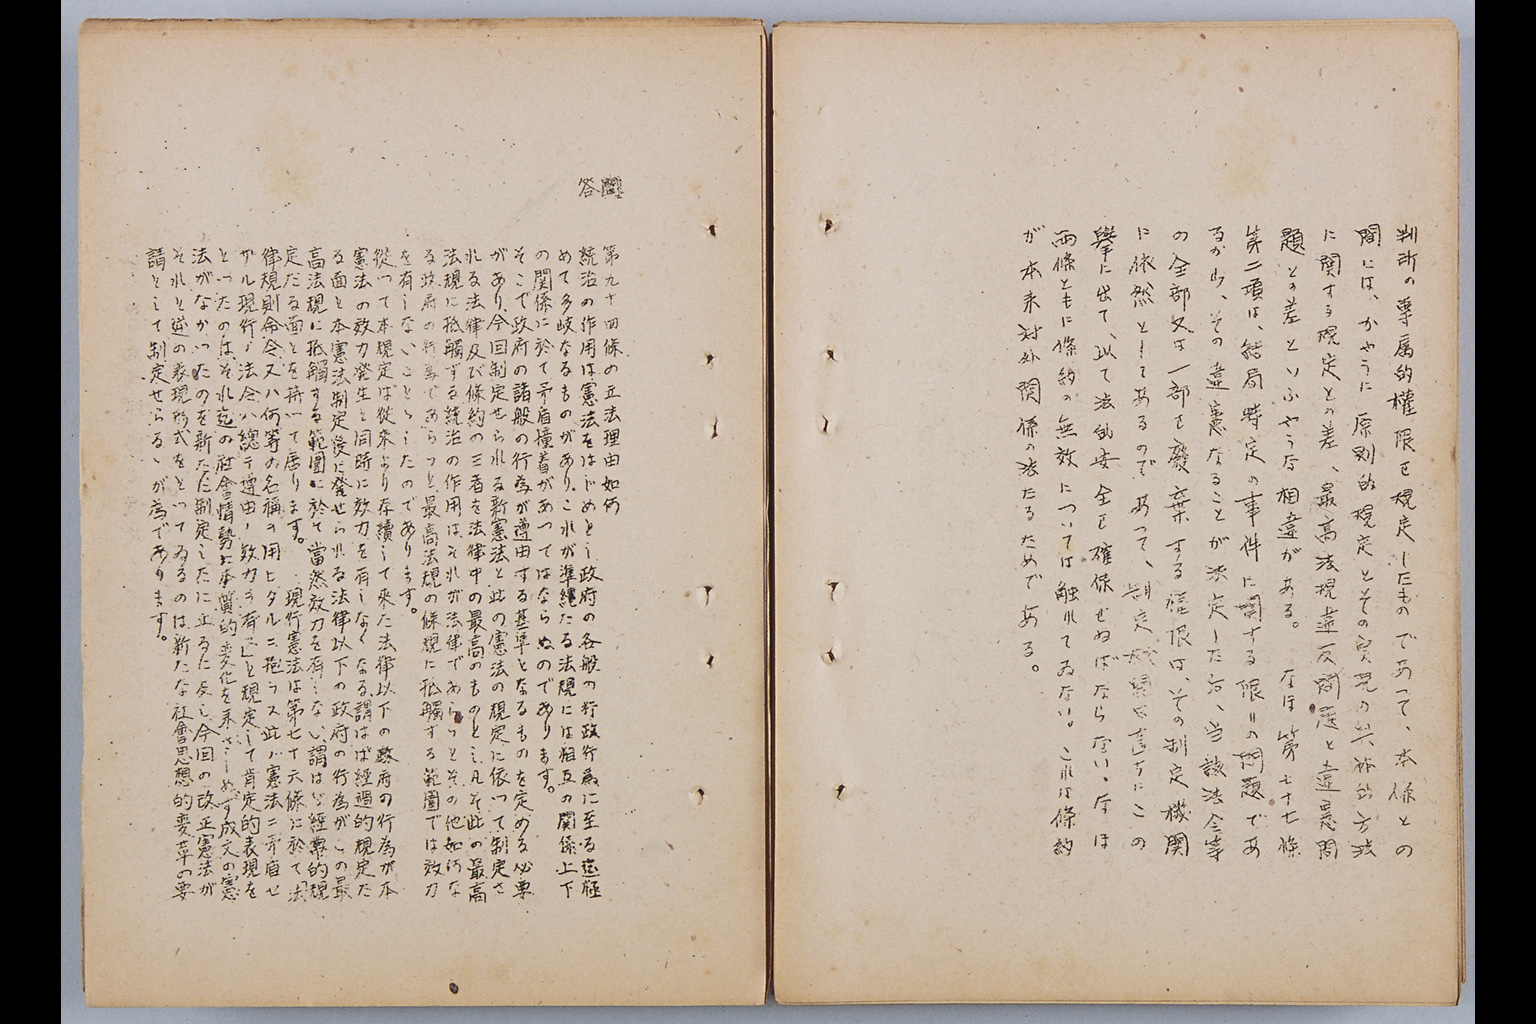 判所の専属的權限を規定したものであつて、本條との
間には、かやうに原則的規定とその実現の具体的方法
に関する規定との差、最高法規違反問題と違憲問
題との差といふやうな相違がある。なほ第七十七條
第二項は、結局特定の事件に関する限りの問題であ
るから、その違憲なることが決定した后、当該法令等
の全部又は一部を廢棄する権限は、その制定機関
に依然としてあるのであつて、制定機関は直ちにこの
擧に出て、以て法的安全を確保せねばならない。なほ
両條ともに條約の無效については触れてゐない。これは條約
が本来対外関係の法たるためである。
問 第九十四條の立法理由如何
答 統治の作用は憲法をはじめとし政府の各般の行政行為に至る迄極
めて多岐なるものがあり、これが準縄たる法規には相互の関係上下
の関係に於て矛盾撞着があつてはならぬのであります。
そこで政府の諸般の行為が遵由する基準となるものを定める必要
があり、今回制定せられる新憲法と此の憲法の規定に依つて制定さ
れる法律及び條約の三者を法律中の最高のものとし、凡そ此の最高
法規に抵觸する統治の作用は、それが法律であらうとその他如何な
る政府の行為であらうと最高法規の條規に抵觸する範圍では效力
を有しないことゝしたのであります。
從つて本規定は從来より存續して来た法律以下の政府の行為が本
憲法の效力発生と同時に效力を有しなくなる、謂はば経過的規定た
る面と本憲法制定後に発せられる法律以下の政府の行為がこの最
高法規に抵觸する範圍に於て當然效力を有しない、謂はゞ経常的規
定たる面とを持つて居ります。現行憲法は第七十六條に於て「法
律規則命令又ハ何等ノ名稱ヲ用ヒタルニ拘ラス此ノ憲法ニ矛盾セ
ザル現行ノ法令ハ總テ遵由ノ效力ヲ有ス」と規定して肯定的表現を
とつたのは、それ迄の社會情勢に本質的変化を来さしめず成文の憲
法がなかつたのを新たに制定したに止るに反し、今回の改正憲法が
それと逆の表現形式をとつてゐるのは新たな社會思想的変革の要
請として制定せらるゝが為であります。